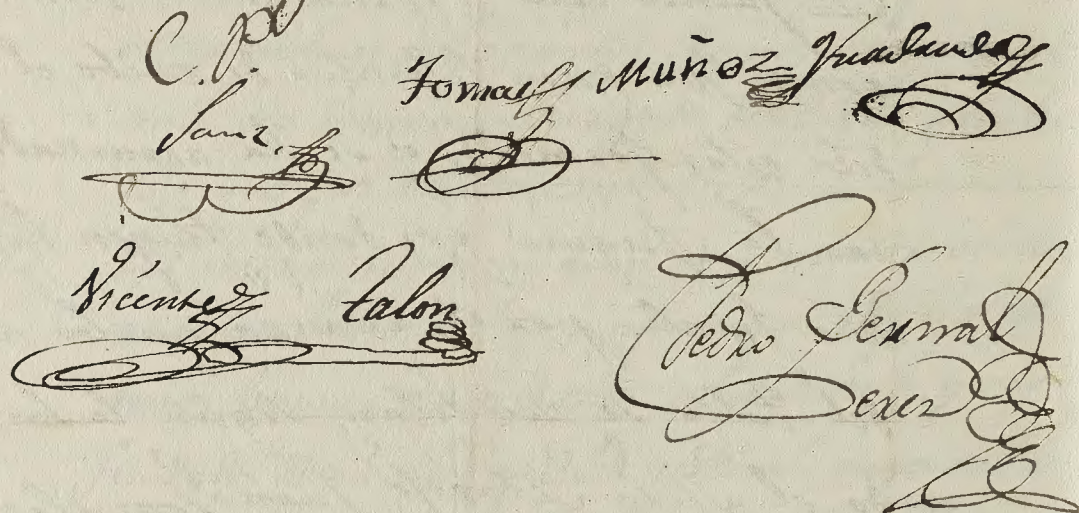 C. P.
Sanz
Tomas Muñoz
Vicente Talon
Pedro Bernal
Perez